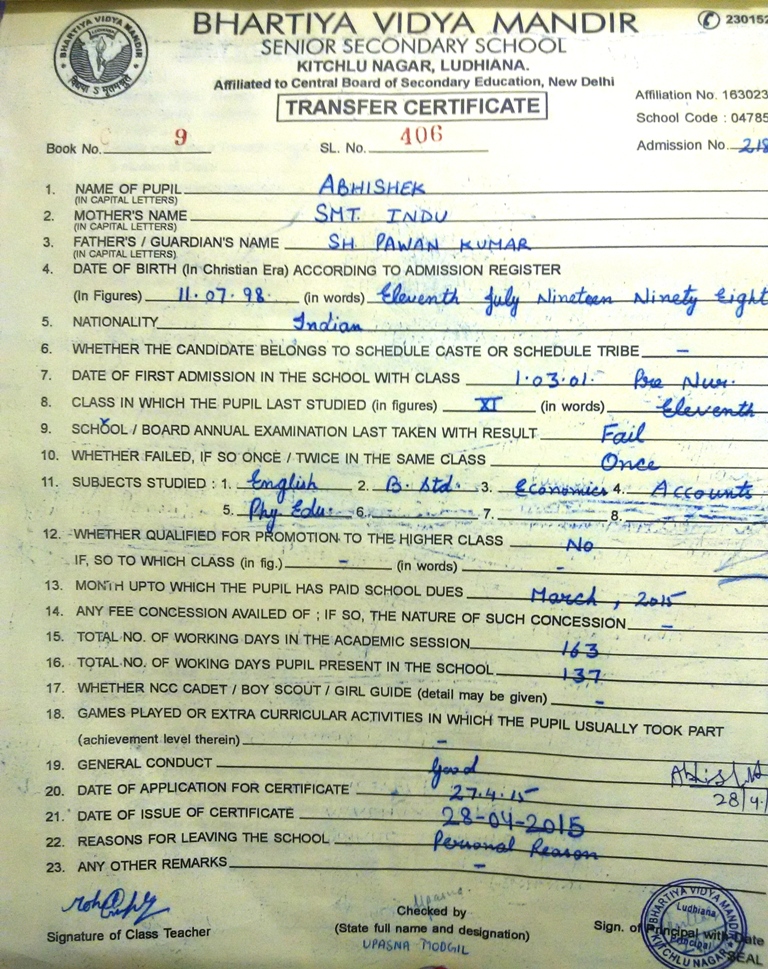 BHARTIYA VIDYA MANDIR
230152
SENIOR SECONDARY SCHOOL
KITCHLU NAGAR, LUDHIANA.
Affiliated to Central Board of Secondary Education, New Delhi
TRANSFER CERTIFICATE
Affiliation No. 163023
School Code : 04785
Book No. 9 SL. No. 406 Admission No. 218
1. NAME OF PUPIL ABHISHEK
(IN CAPITAL LETTERS)
2. MOTHER'S NAME SMT. INDU
(IN CAPITAL LETTERS)
3. FATHER'S / GUARDIAN'S NAME SH. PAWAN KUMAR
(IN CAPITAL LETTERS)
4. DATE OF BIRTH (In Christian Era) ACCORDING TO ADMISSION REGISTER
(In Figures) 11.07.98. (in words) Eleventh July Nineteen Ninety Eight
5. NATIONALITY Indian
6. WHETHER THE CANDIDATE BELONGS TO SCHEDULE CASTE OR SCHEDULE TRIBE –
7. DATE OF FIRST ADMISSION IN THE SCHOOL WITH CLASS 1.03.01. Pre Nur.
8. CLASS IN WHICH THE PUPIL LAST STUDIED (in figures) XI (in words) Eleventh
9. SCHOOL / BOARD ANNUAL EXAMINATION LAST TAKEN WITH RESULT Fail
10. WHETHER FAILED, IF SO ONCE / TWICE IN THE SAME CLASS Once
11. SUBJECTS STUDIED : 1. English 2. B. Std. 3. Economics 4. Accounts
5. Phy. Edu. 6. 7. 8.
12. WHETHER QUALIFIED FOR PROMOTION TO THE HIGHER CLASS No
IF, SO TO WHICH CLASS (in fig.) – (in words) –
13. MONTH UPTO WHICH THE PUPIL HAS PAID SCHOOL DUES March, 2015
14. ANY FEE CONCESSION AVAILED OF ; IF SO, THE NATURE OF SUCH CONCESSION –
15. TOTAL NO. OF WORKING DAYS IN THE ACADEMIC SESSION 163
16. TOTAL NO. OF WOKING DAYS PUPIL PRESENT IN THE SCHOOL 137
17. WHETHER NCC CADET / BOY SCOUT / GIRL GUIDE (detail may be given) –
18. GAMES PLAYED OR EXTRA CURRICULAR ACTIVITIES IN WHICH THE PUPIL USUALLY TOOK PART
(achievement level therein) –
19. GENERAL CONDUCT Good
20. DATE OF APPLICATION FOR CERTIFICATE 27.4.15
28/4/
21. DATE OF ISSUE OF CERTIFICATE 28-04-2015
22. REASONS FOR LEAVING THE SCHOOL Personal Reason
23. ANY OTHER REMARKS –
Signature of Class Teacher
Checked by
(State full name and designation)
UPASNA MODGIL
Sign. of Principal with Date
SEAL
BHARTIYA VIDYA MANDIR
Ludhiana
Principal
KITCHLU NAGAR